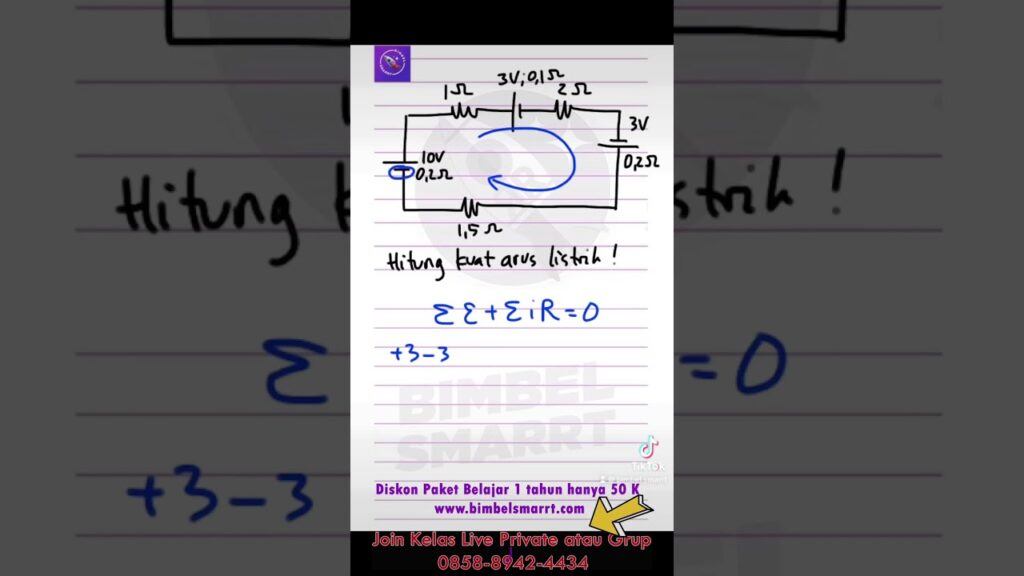 3V; 0,1Ω
1Ω
2Ω
3V
0,2Ω
10V
0,2Ω
1,5 Ω
Hitung kuat arus listrik !
Σ Ɛ + Σ i R = 0
+3 – 3
BIMBEL
SMARRT
TikTok
Diskon Paket Belajar 1 tahun hanya 50 K
www.bimbelsmarrt.com
Join Kelas Live Private atau Grup
0858-8942-4434
Hitung k
strik !
Σ
= 0
+3 – 3